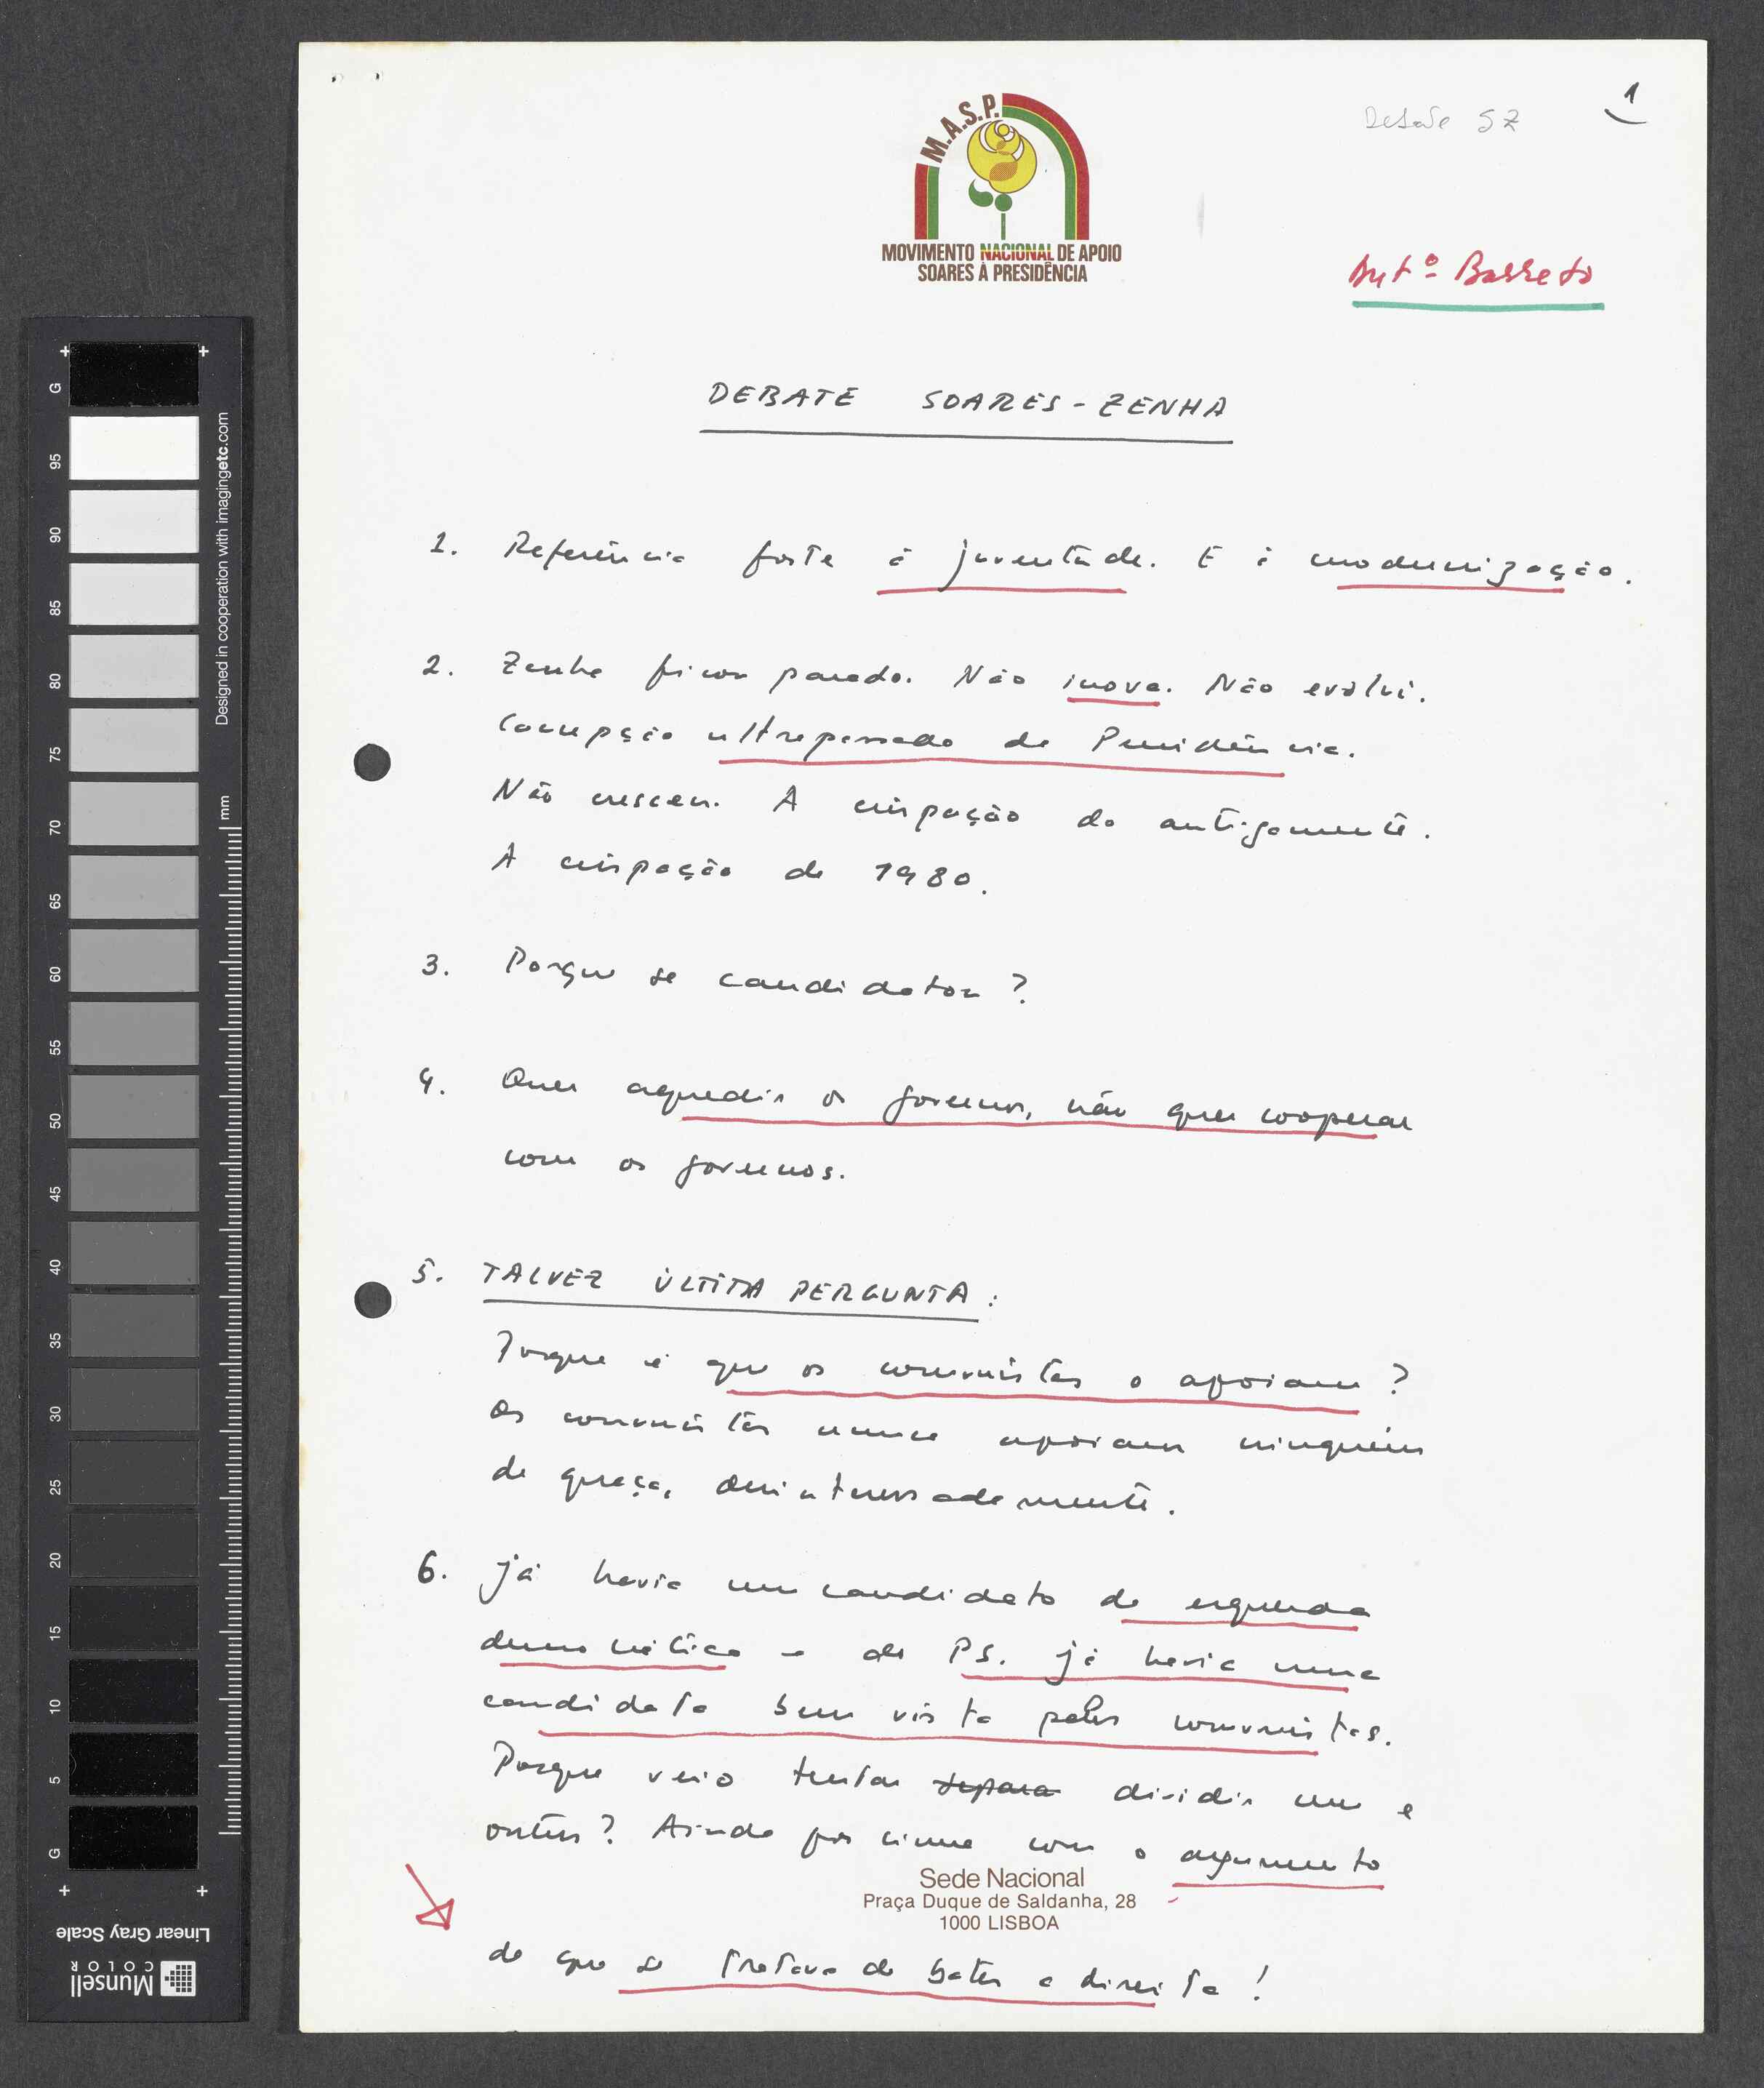 Debate SZ
1
M.A.S.P.
MOVIMENTO NACIONAL DE APOIO
SOARES À PRESIDÊNCIA
Antº Barreto
DEBATE SOARES-ZENHA
1. Referência forte à juventude. E à modernização.
2. Zenha ficou parado. Não inova. Não evolui.
Concepção ultrapassada da Presidência.
Não cresceu. A crispação de antigamente.
A crispação de 1980.
3. Porque se candidatou?
4. Quer agredir os governos, não quer cooperar
com os governos.
5. TALVEZ ÚLTIMA PERGUNTA:
Porque é que os comunistas o apoiam?
Os comunistas nunca apoiam ninguém
de graça, desinteressadamente.
6. Já havia um candidato da esquerda
democrática e do PS. Já havia uma
candidata bem vista pelos comunistas.
Porque veio tentar separa dividir uns e
outros? Ainda por cima com o argumento
Sede Nacional
Praça Duque de Saldanha, 28
1000 LISBOA
de que se tratava de bater a direita!
G
95
90
85
80
75
70
65
60
55
50
45
40
35
30
25
20
15
10
5
G
Designed in cooperation with imagingetc.com
mm
Linear Gray Scale
Munsell
COLOR